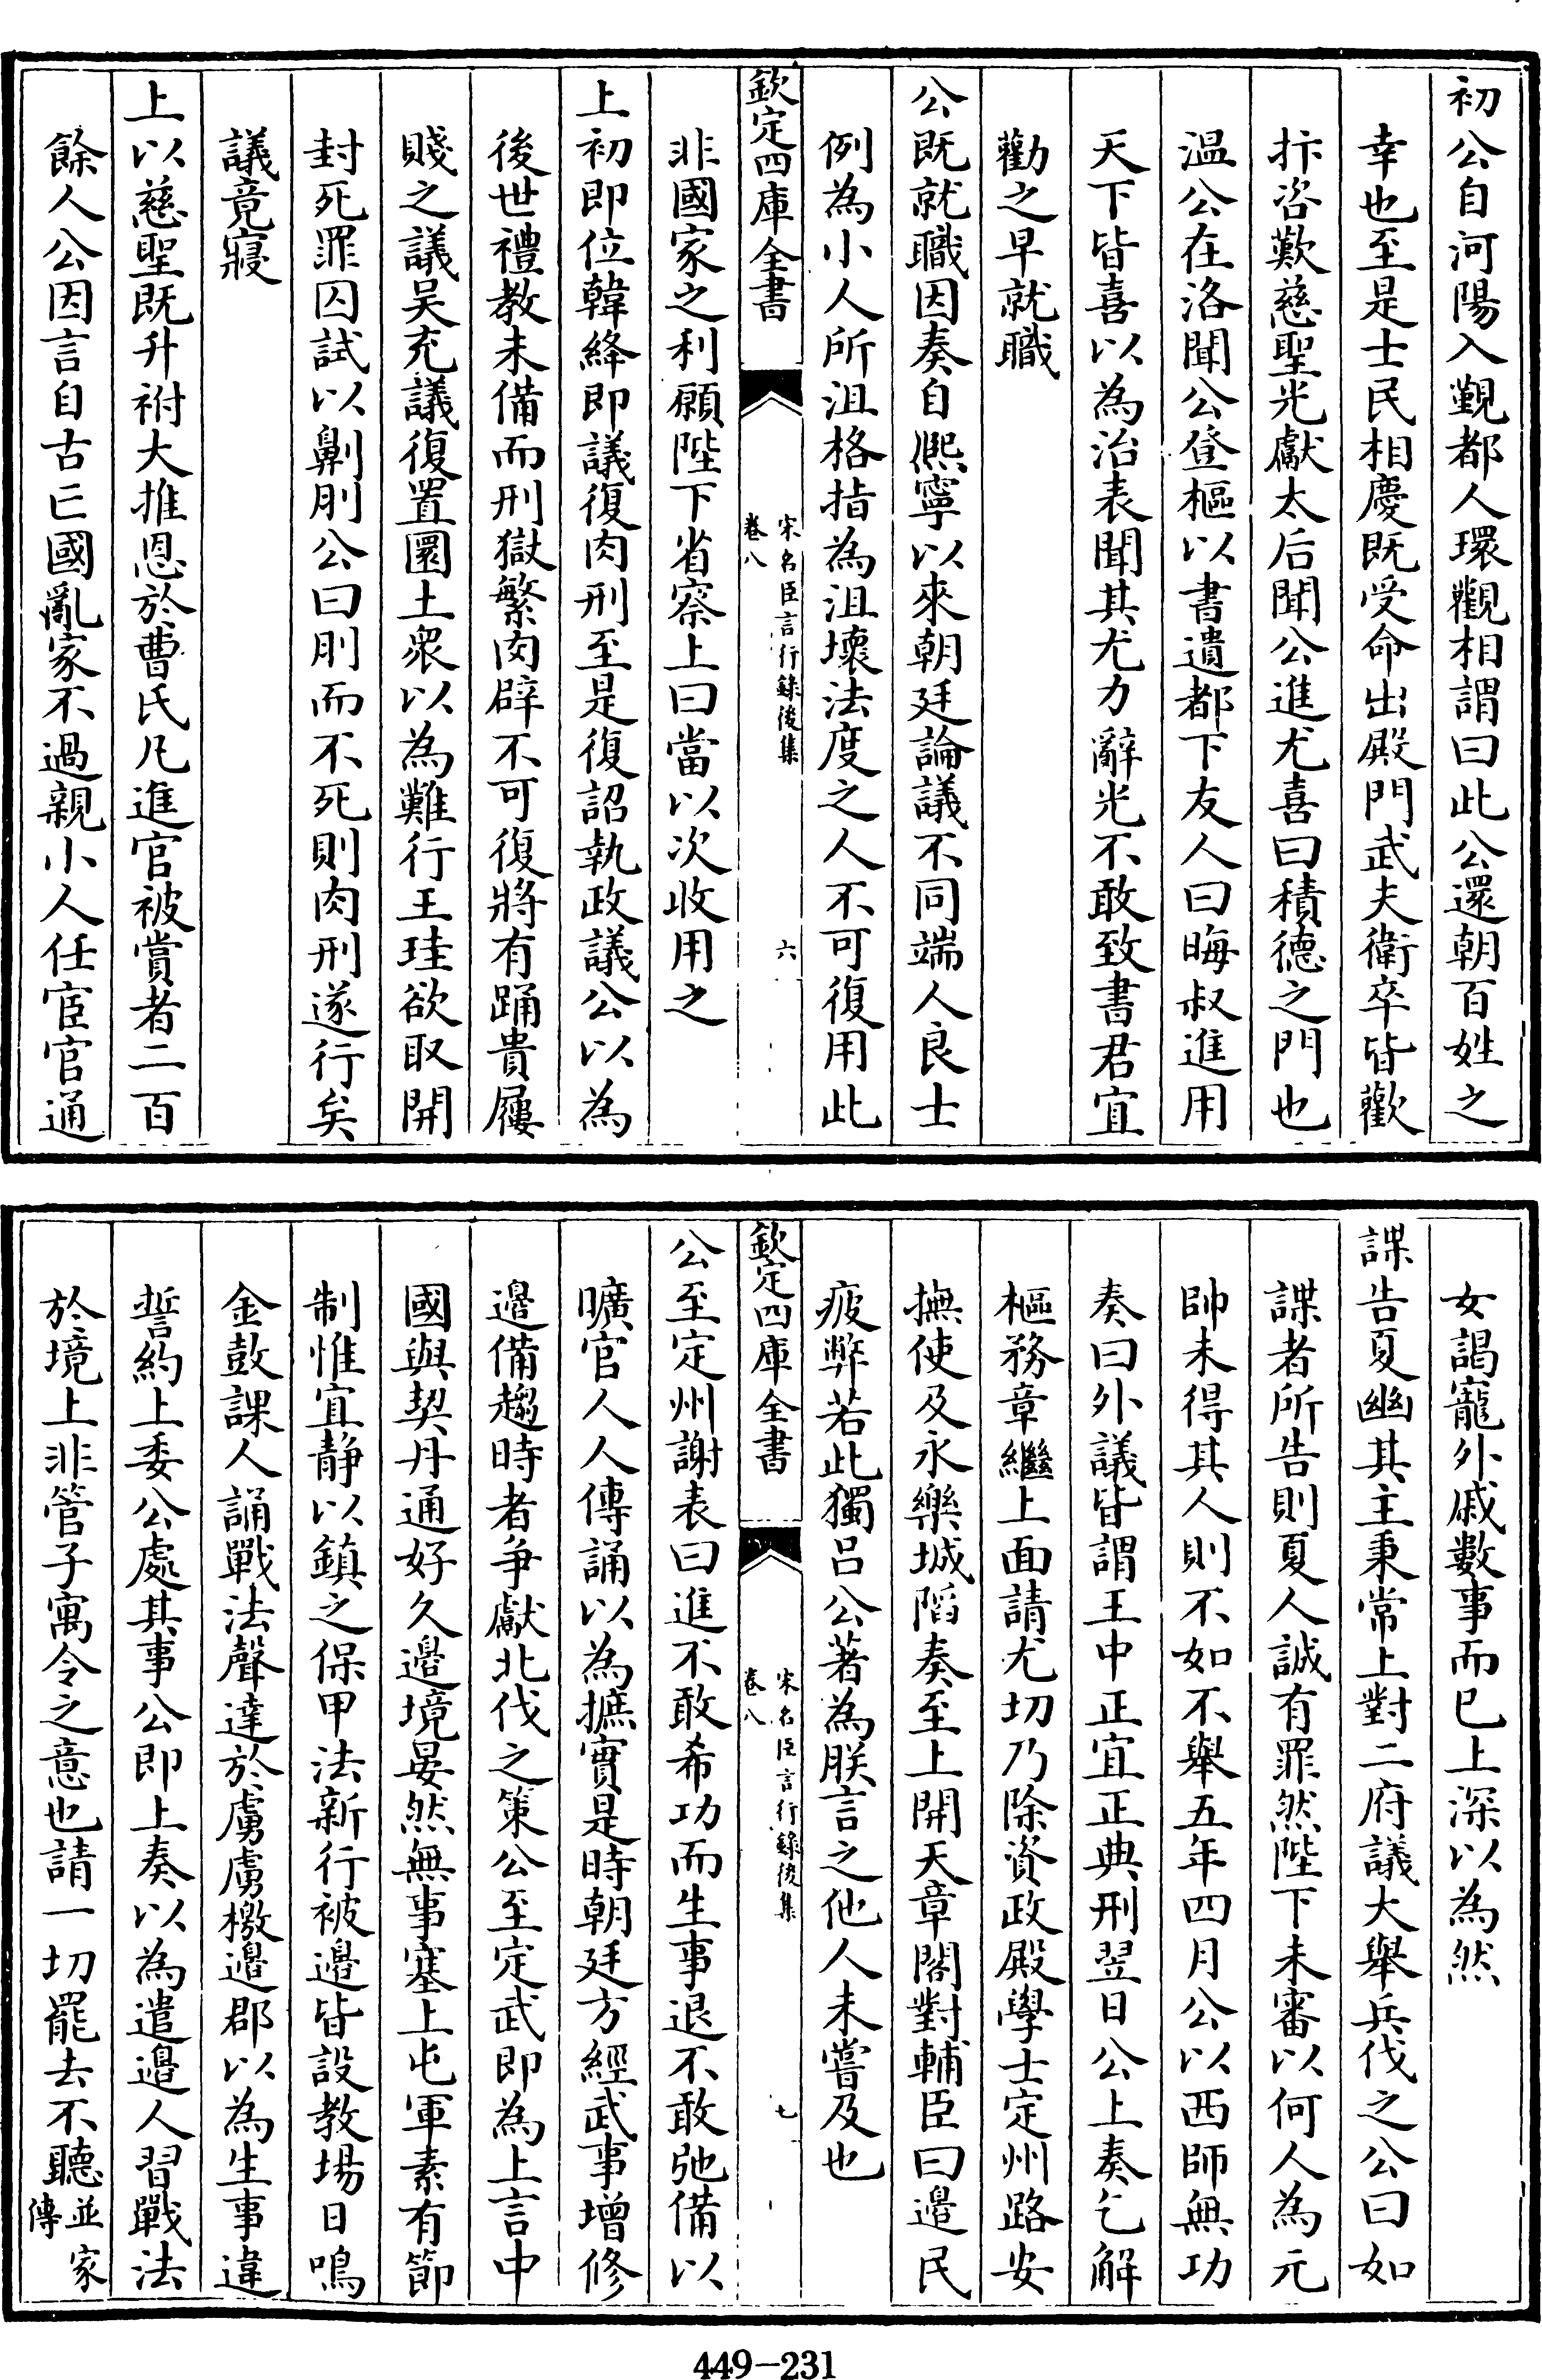 初公自河陽入覲都人環觀相謂曰此公還朝百姓之
幸也至是士民相慶既受命出殿門武夫衛卒皆歡
抃咨歎慈聖光獻太后聞公進尤喜曰積德之門也
温公在洛聞公登樞以書遺都下友人曰晦叔進用
天下皆喜以為治表聞其尤力辭光不敢致書君宜
勸之早就職
公既就職因奏自熈寧以來朝廷論議不同端人良士
例為小人所沮格指為沮壞法度之人不可復用此
欽定四庫全書
宋名臣言行錄後集
卷八
六
非國家之利願陛下省察上曰當以次收用之
上初即位韓絳即議復肉刑至是復詔執政議公以為
後世禮教未備而刑獄繁肉辟不可復將有踊貴屨
賤之議吴充議復置圜土衆以為難行王珪欲取開
封死罪囚試以劓刖公曰刖而不死則肉刑遂行矣
議竟寢
上以慈聖既升祔大推恩於曹氏凡進官被賞者二百
餘人公因言自古亡國亂家不過親小人任宦官通
女謁寵外戚數事而已上深以為然
諜告夏幽其主秉常上對二府議大舉兵伐之公曰如
諜者所告則夏人誠有罪然陛下未審以何人為元
帥未得其人則不如不舉五年四月公以西師無功
奏曰外議皆謂王中正宜正典刑翌日公上奏乞解
樞務章繼上面請尤切乃除資政殿學士定州路安
撫使及永樂城䧟奏至上開天章閣對輔臣曰邉民
疲弊若此獨吕公著為朕言之他人未嘗及也
欽定四庫全書
宋名臣言行錄後集
卷八
七
公至定州謝表曰進不敢希功而生事退不敢弛備以
曠官人人傳誦以為摭實是時朝廷方經武事增修
邉備趨時者争獻北伐之策公至定武即為上言中
國與契丹通好久邉境晏然無事塞上屯軍素有節
制惟宜静以鎮之保甲法新行被邉皆設教場日鳴
金鼓課人誦戰法聲達於虜虜檄邉郡以為生事違
誓約上委公處其事公即上奏以為遣邉人習戰法
於境上非管子寓令之意也請一切罷去不聽並家傳
449-231